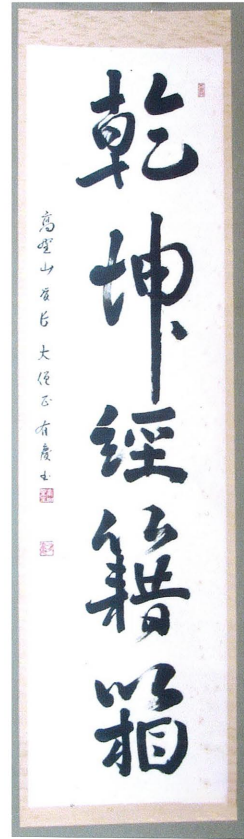 乾坤經籍箱
高野山座主 大僧正 有慶書